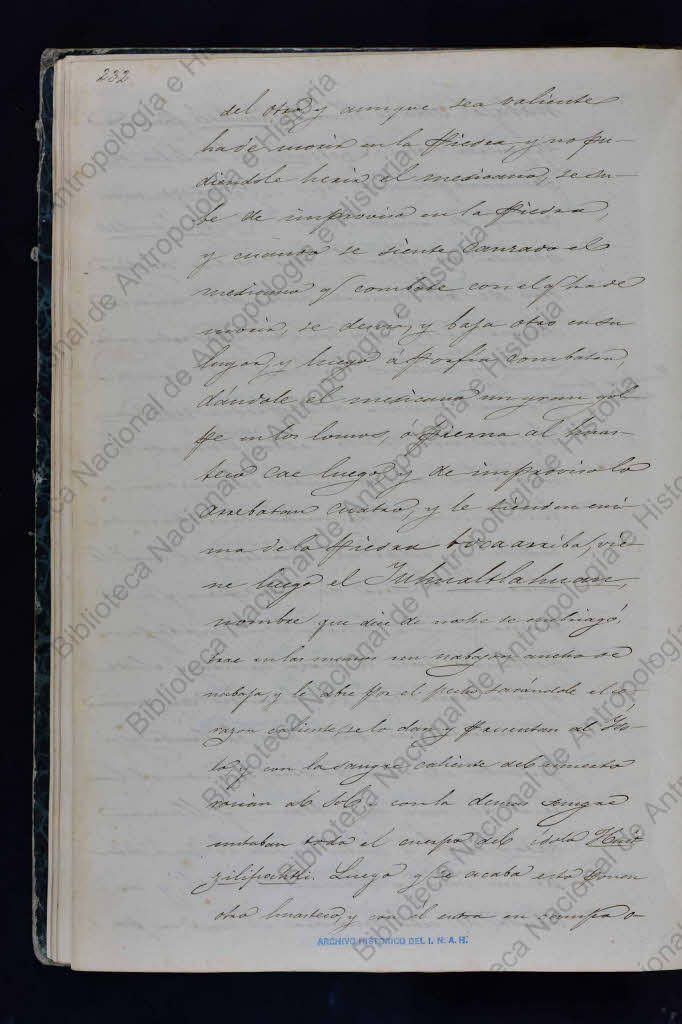 232
del otro, y aunque sea valiente
ha de morir en la piedra, y no pu-
diendole herir el mexicano, se su-
be de improviso en la piedra,
y cuando se siente canzado el
mexicano q/ combate con el q/ ha de
morir, se desvia, y baja otro en su
lugar, y luego á porfia combaten,
dándole el mexicano un gran gol
pe en los lomos, ó pierna al huas-
teco cae luego, y de improviso lo
arrebatan cuatro, y le tienden enci
ma de la piedra boca arriba, vie-
ne luego el
nombre que dice de noche se embriagó,
trae en las manos un navajon ancho de
nabaja, y le abre por el pecho, sacándole el co-
razon caliente, se lo dan y presentan al Ido-
lo y con la sangre caliente del muerto
rocian al Sol: con la demas sangre
untaban todo el cuerpo del idolo Huit
zilipochtli. Luego q/ se acaba esto ponen
otro huasteco, y con él entra en campo o-
ARCHIVO HISTORICO DEL I. N. A. H.
Biblioteca Nacional de Antropología e Historia